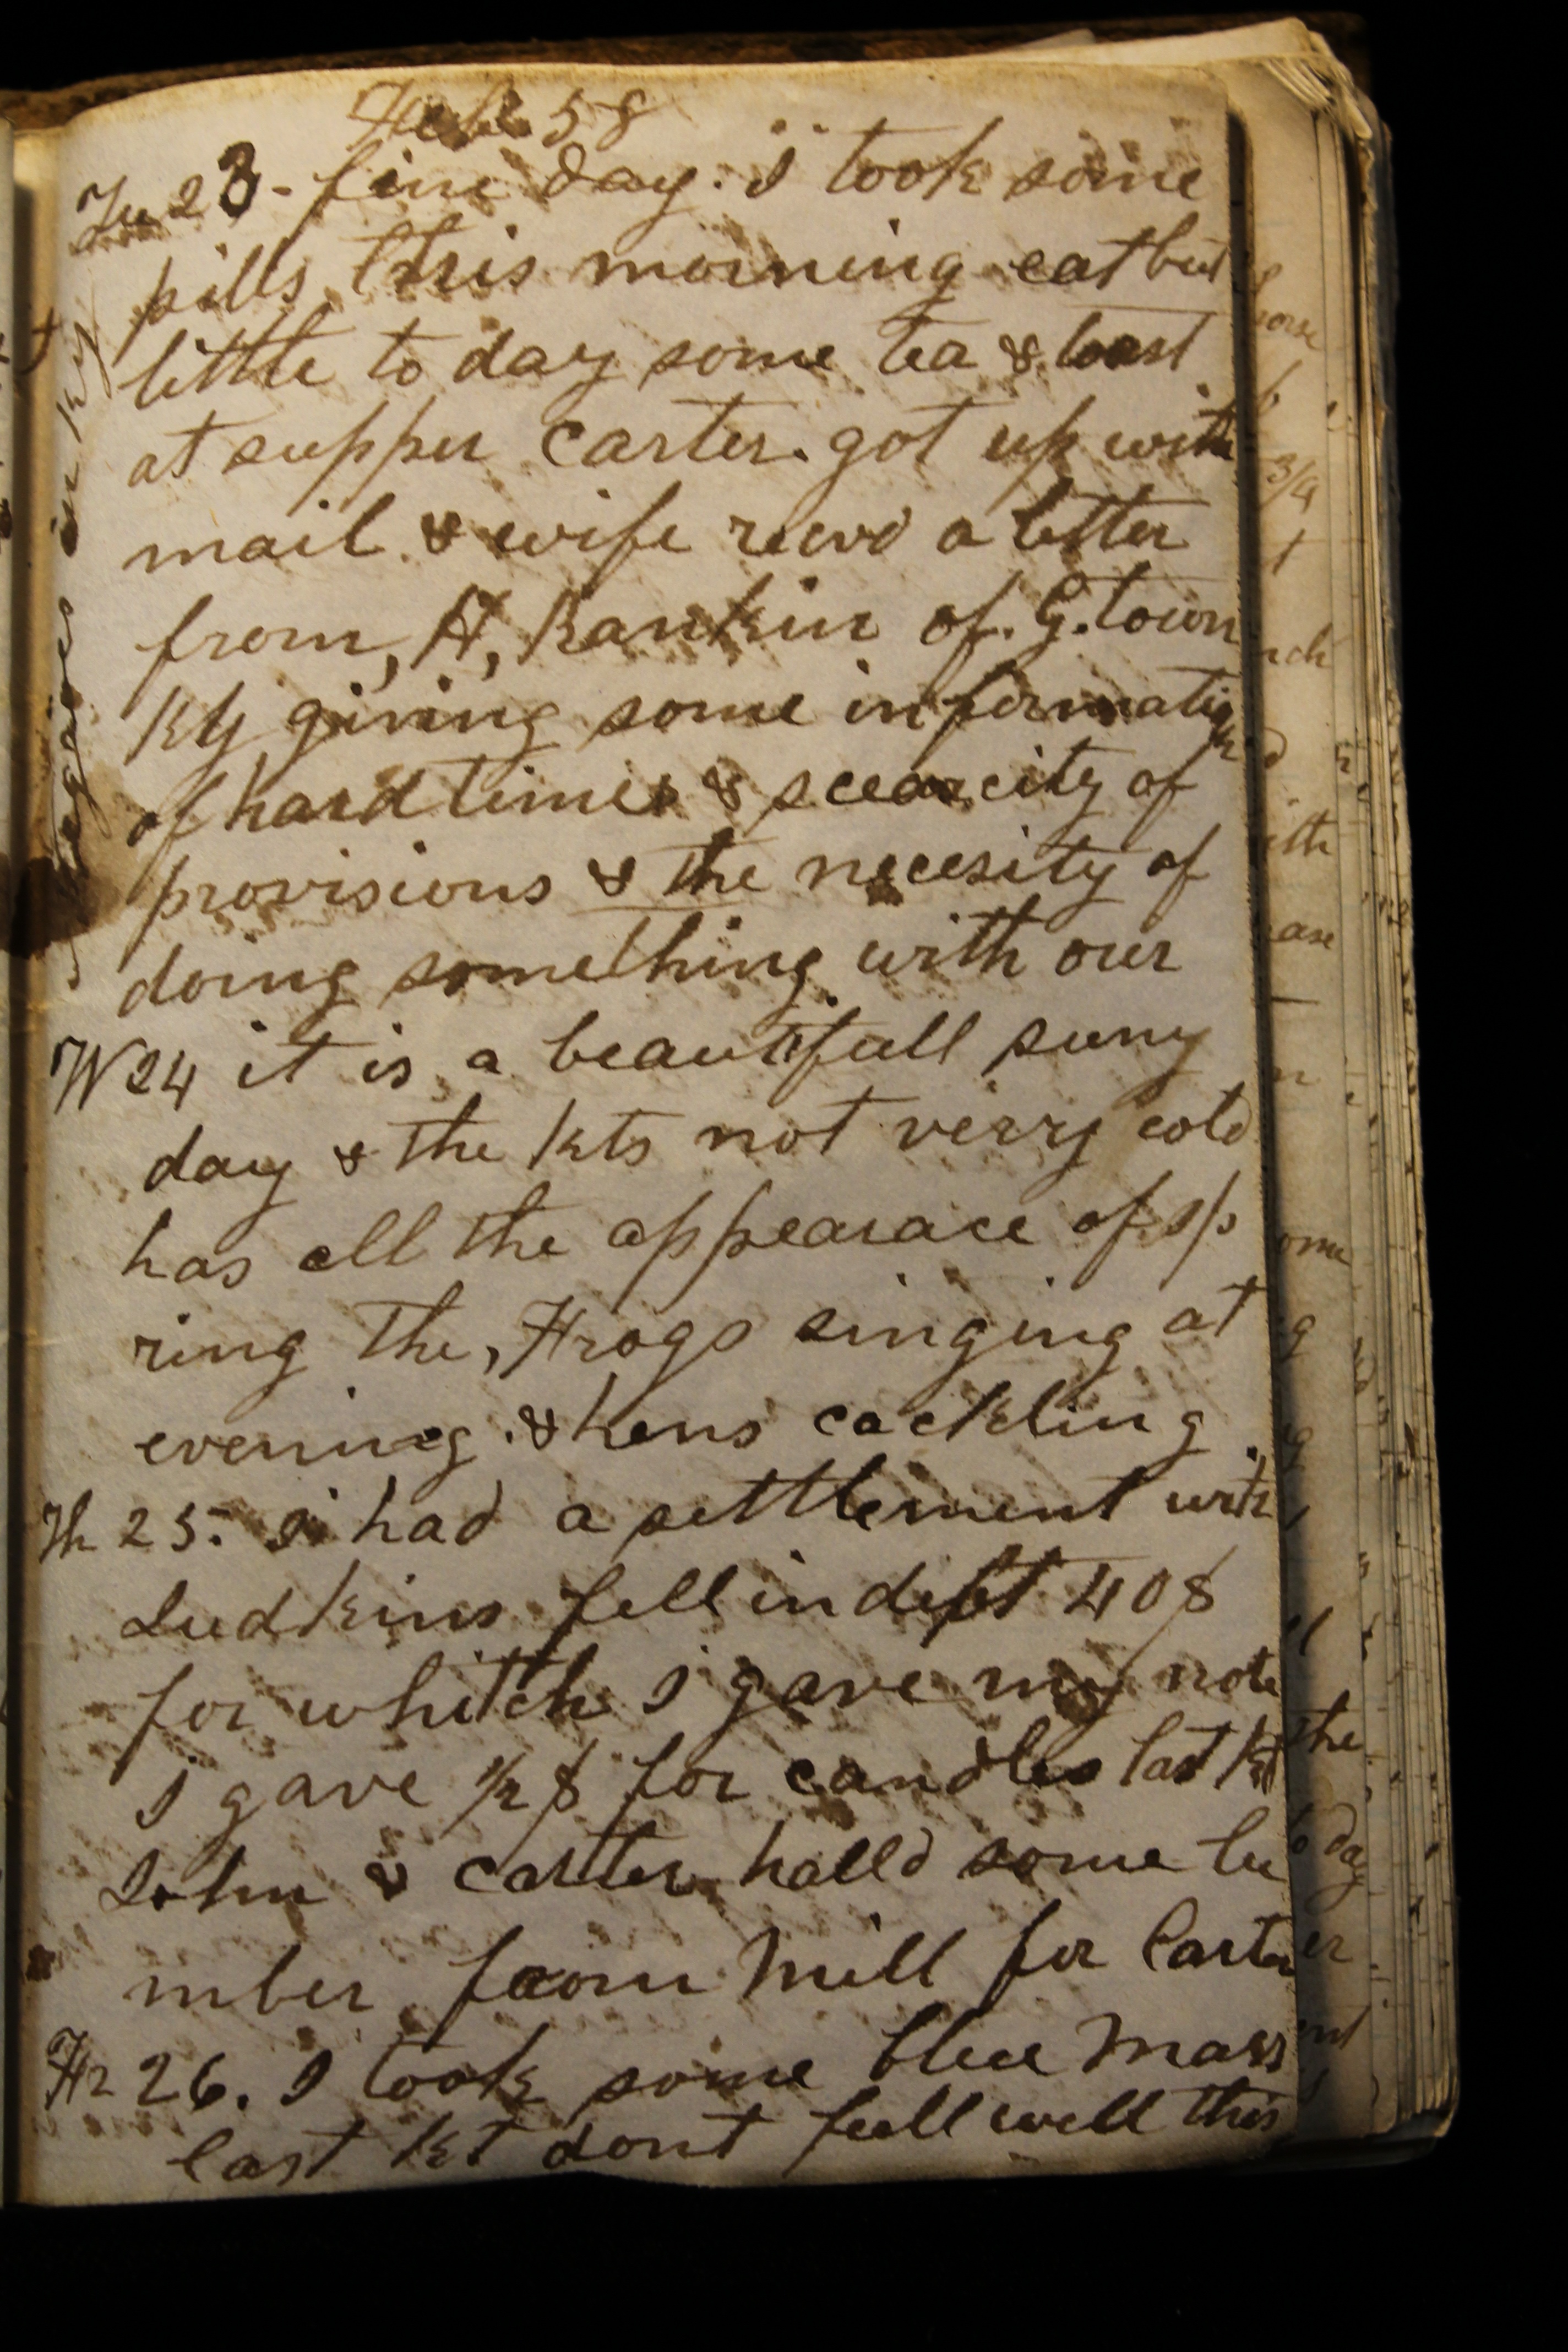 Feb 58
Tu 23 - fine day. I took some
pills this morning eat but
little to day some tea & toast
at supper Carter. got up with
mail & wife recvd a letter
from, H, Rankin of. G. town
Ky giving some information
of hard times & scearcity of
provisions & the necesity of
doing something with our
negroes in Ky
W 24 it is a beautifull suny
day & the Kts not verry cold
has all the appearace of sp
ring the, Frogs singing at
evening. & hens cackling
Th 25. I had a settlement with
Ludkins fell in debt 40 $
for whitch I gave my note
I gave 1/2 $ for candles last Kt
John & Carter halld some lu
mber from Mill for Carter
Fr 26. I took some blue Mass
last Kt dont feell well this